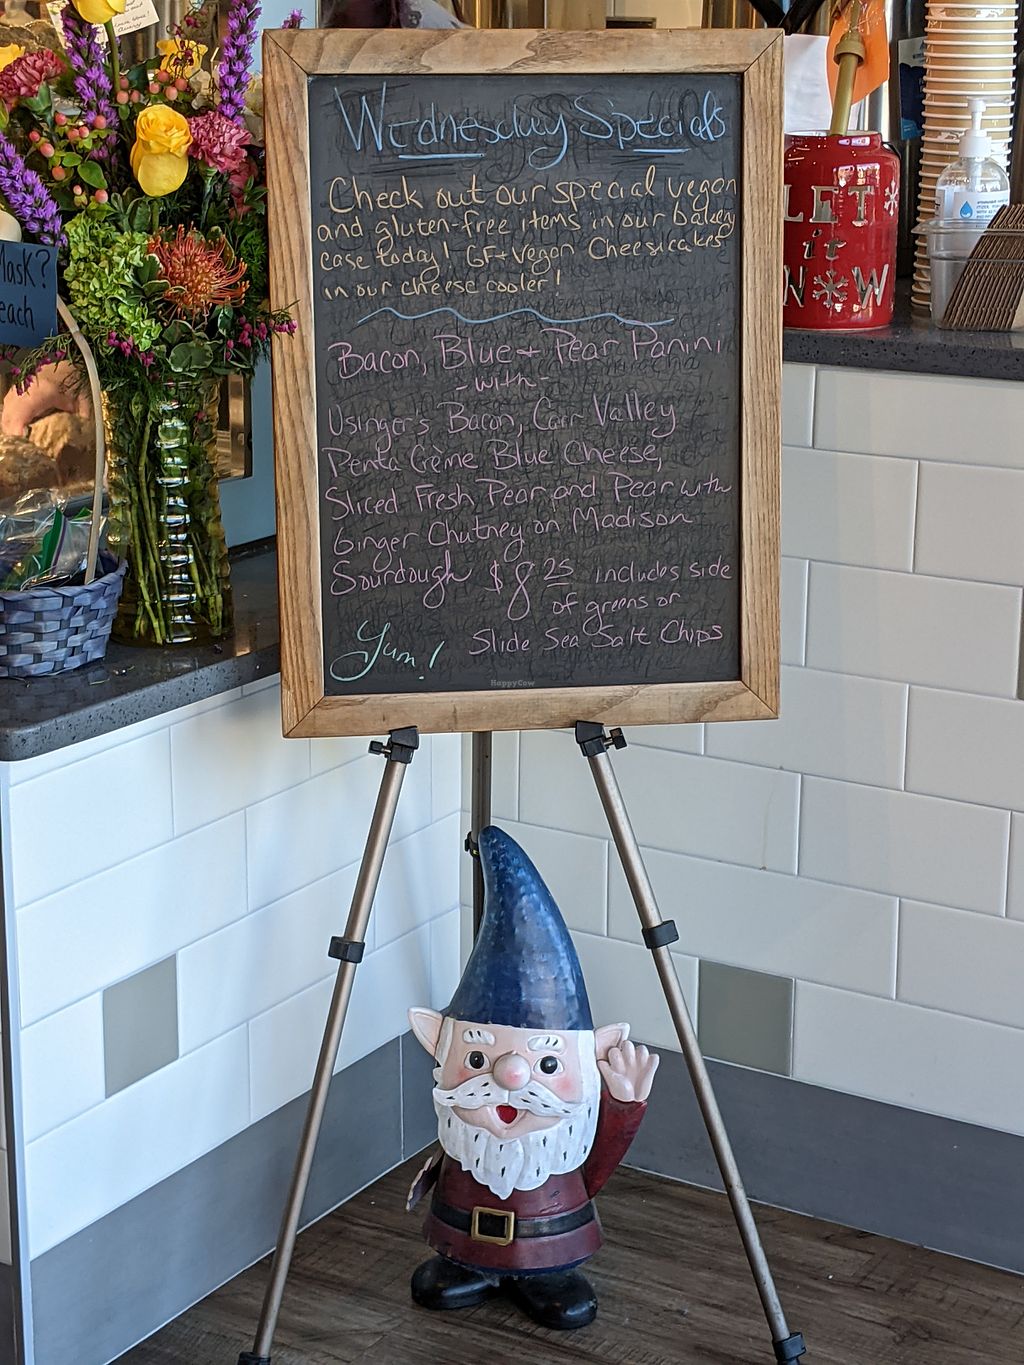 Wednesday Specials
Check out our special vegan
and gluten-free items in our bakery
case today! GF + Vegan Cheesecakes
in our cheese cooler!
Bacon, Blue + Pear Panini
- with -
Usinger's Bacon, Carr Valley
Penta Crème Blue Cheese,
Sliced Fresh Pear and Pear with
Ginger Chutney on Madison
Sourdough $8 25 includes side
of greens or
Yum! Slide Sea Salt Chips
Mask?
each
LET
it
NOW
HappyCow